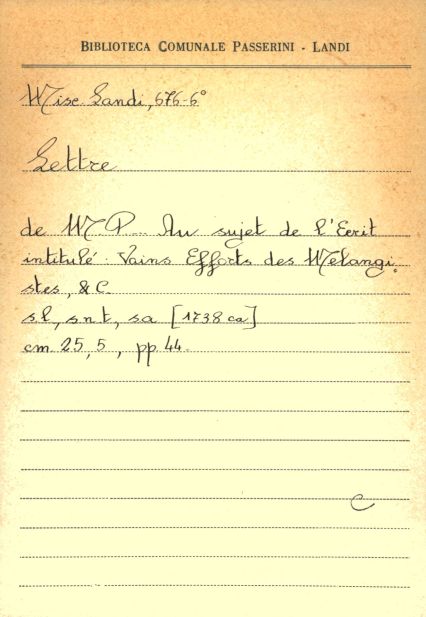 BIBLIOTECA COMUNALE PASSERINI - LANDI
Misc. Landi, 676-6°
Lettre
de M P... Au sujet de l'Ecrit
intitulé: Vains Efforts des Mélangi
stes, & C.
s.l, s.n.t, s.a [1738 ca]
cm. 25,5, pp. 44.
C